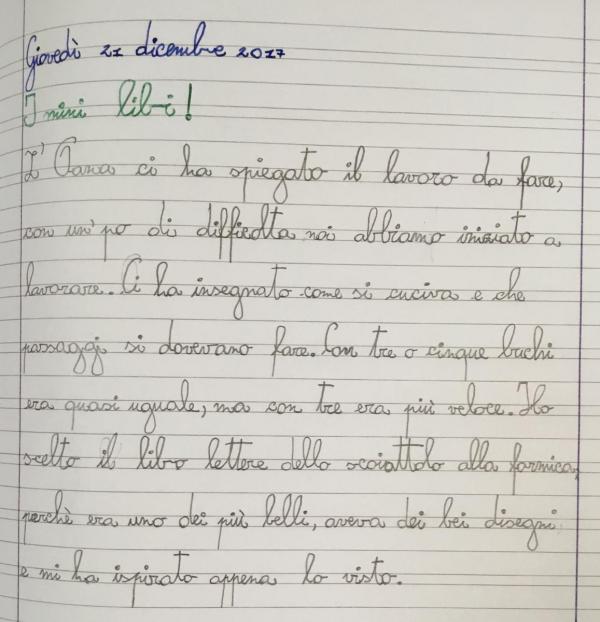 Giovedì 21 dicembre 2017
I mini libri!
L'Oana ci ha spiegato il lavoro da fare,
con un'po di diffiedlta noi abbiamo iniziato a
lavorare. Ci ha insegnato come si cuciva e che
passaggi si dovevano fare. Con tre o cinque buchi
era quasi uguale, ma con tre era più veloce. Ho
scelto il libro lettere dello scoiattolo alla formica,
perchè era uno dei più belli, aveva dei bei disegni
e mi ha ispirato appena lo visto.